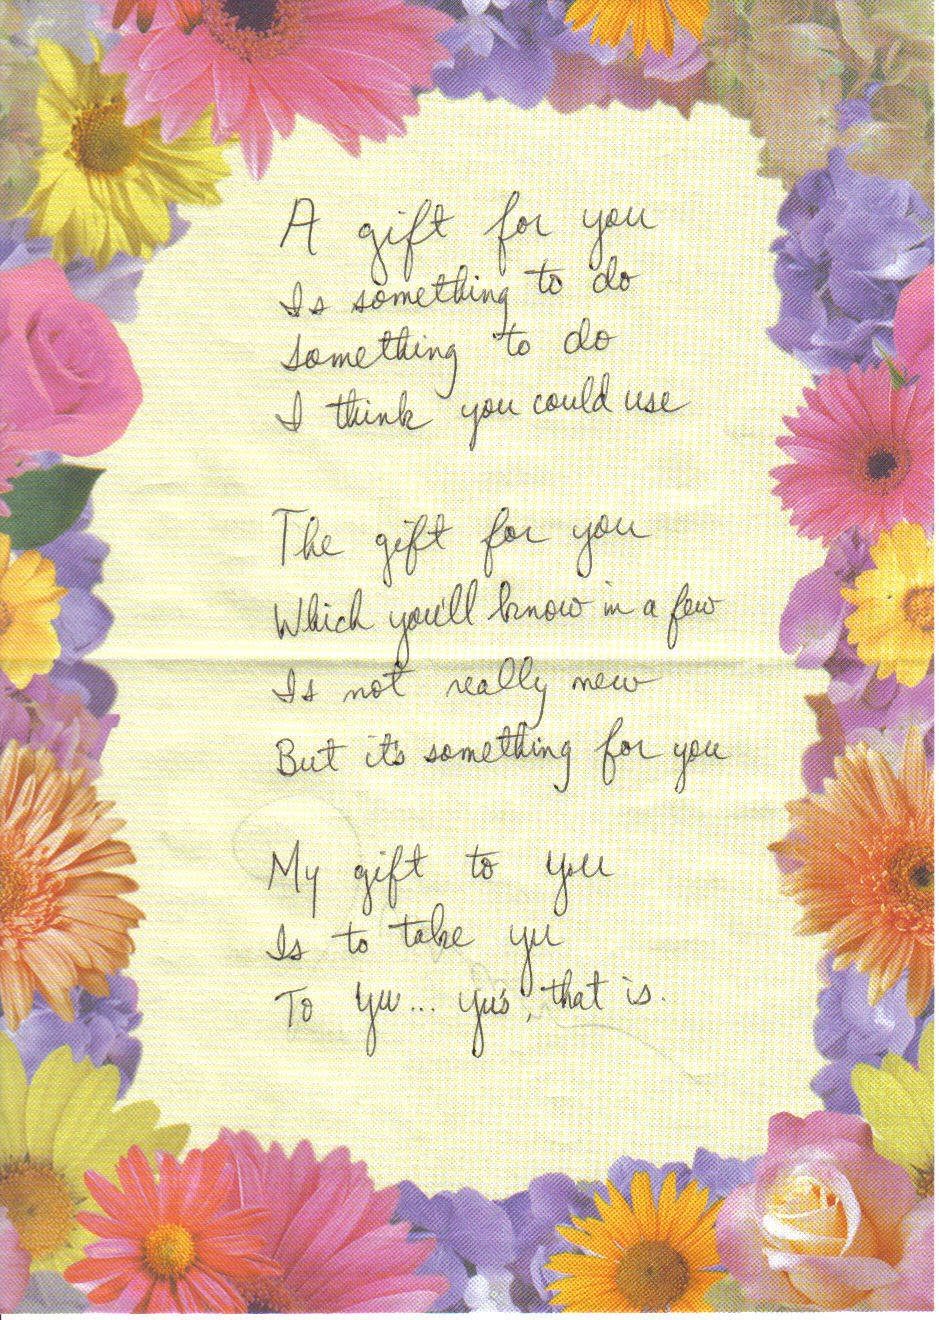 A gift for you
Is something to do
something to do
I think you could use
The gift for you
Which you'll know in a few
Is not really new
But it's something for you
My gift to you
Is to take yu
To Yu... yu's, that is.